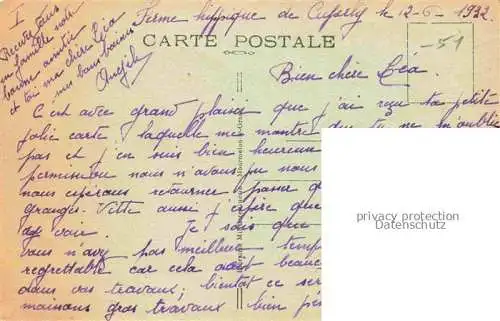 I
Recevez tous
en famille notre
bonne amitié
et toi ma chère Léa
mes bons baisers
Angèle
Ferme hippique de Cuperly le 12-6-1932
CARTE POSTALE
-51
Bien chère Léa.
C'est avec grand plaisir que j'ai reçu ta petite
jolie carte laquelle me montre que tu ne m'oublie
pas et j'en suis bien heureuse
permission nous n'avons pu nous
nous espérons retourner passer
granges. Vitte aussi j'espère que
de voir. Je sais que
vous n'avez pas meilleur temps
regrettable car cela
dans vos travaux; bientôt ce ser
maisons gros travaux bien
privacy protection
Datenschutz